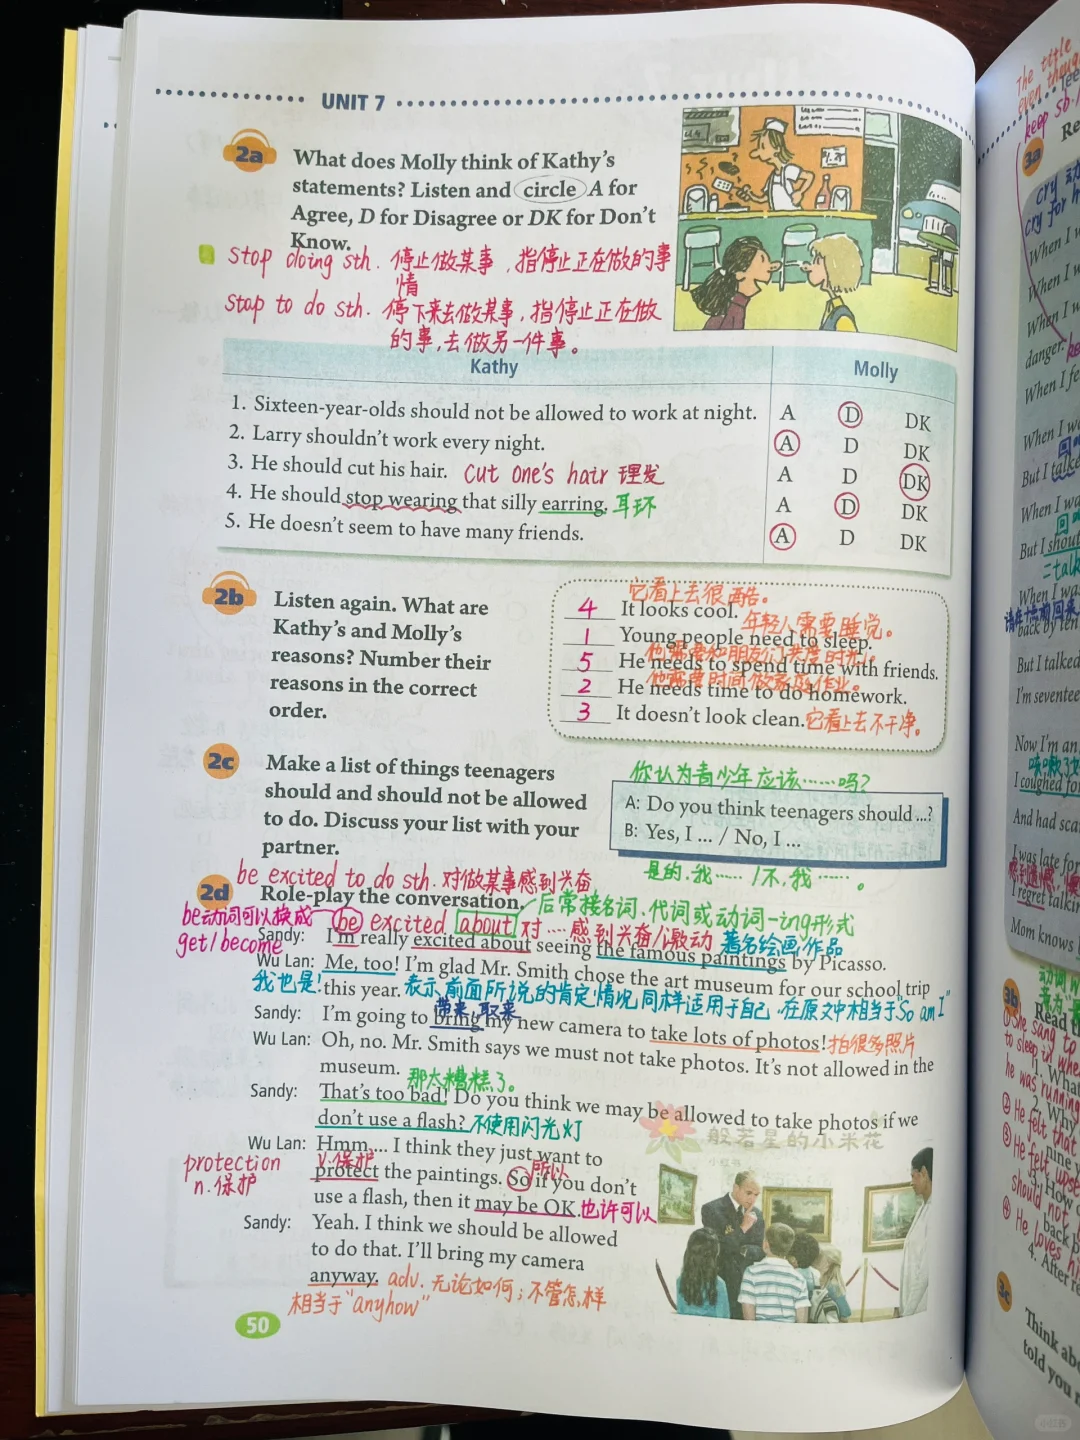 UNIT 7
2a
What does Molly think of Kathy's
statements? Listen and circle A for
Agree, D for Disagree or DK for Don't
Know.
stop doing sth. 停止做某事,指停止正在做的事
情
stop to do sth. 停下来去做某事,指停止正在做
的事,去做另一件事。
Kathy Molly
1. Sixteen-year-olds should not be allowed to work at night. A D DK
2. Larry shouldn't work every night. A D DK
3. He should cut his hair. cut one's hair 理发 A D DK
4. He should stop wearing that silly earring. 耳环 A D DK
5. He doesn't seem to have many friends. A D DK
2b
Listen again. What are
Kathy's and Molly's
reasons? Number their
reasons in the correct
order.
它看上去很酷。
4 It looks cool.
年轻人需要睡觉。
1 Young people need to sleep.
他需要和朋友们共度时光。
5 He needs to spend time with friends.
他需要时间做家庭作业。
2 He needs time to do homework.
3 It doesn't look clean. 它看上去不干净。
2c
Make a list of things teenagers
should and should not be allowed
to do. Discuss your list with your
partner.
你认为青少年应该……吗?
A: Do you think teenagers should ...?
B: Yes, I ... / No, I ...
是的,我……/不,我……。
be excited to do sth. 对做某事感到兴奋
2d
Role-play the conversation.
后常接名词、代词或动词-ing形式
be动词可以换成
get/become
be excited about 对…感到兴奋/激动 著名绘画作品
Sandy: I'm really excited about seeing the famous paintings by Picasso.
Wu Lan: Me, too! I'm glad Mr. Smith chose the art museum for our school trip
this year.
我也是! 表示前面所说的肯定情况同样适用于自己,在原文中相当于"So am I"
带来,取来
Sandy: I'm going to bring my new camera to take lots of photos! 拍很多照片
Wu Lan: Oh, no. Mr. Smith says we must not take photos. It's not allowed in the
museum.
那太糟糕了。
Sandy: That's too bad! Do you think we may be allowed to take photos if we
don't use a flash? 不使用闪光灯
Wu Lan: Hmm, ... I think they just want to
v.保护 所以
protect the paintings. So if you don't
protection
n.保护
use a flash, then it may be OK. 也许可以
Sandy: Yeah. I think we should be allowed
to do that. I'll bring my camera
anyway. adv. 无论如何;不管怎样
相当于"anyhow"
般若星的小米花
50
The title
even though
keep sb.
3a
Re
When I w
When I w
danger.
When I fe
When I wa
But I talke
When I wa
But I shout
=talk
When I wa
back by ten
But I talked
I'm seventee
Now I'm an
I coughed for
And had sca
I was late for
I regret talkin
Mom knows
3b
Read t
①She sang to
to sleep in whe
he was running
1. What
2. Why
②He felt that
③He felt upse
should not
④He loves hi
4. After re
3c
Think abo
told you